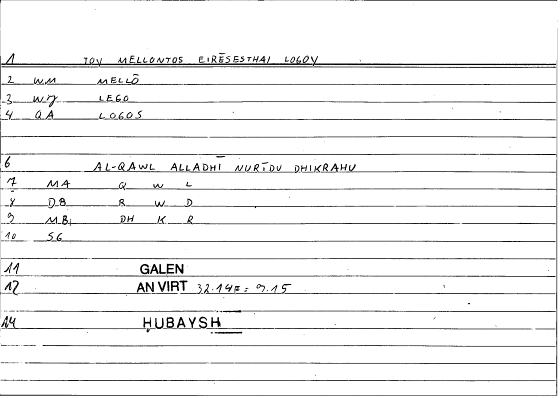 1 TOV MELLONTOS EIRĒSESTHAI LOGOV
2 WM MELLŌ
3 WJ LEGO
4 QA LOGOS
6 AL-QAWL ALLADHĪ NURĪDU DHIKRAHU
7 MA Q W L
8 DB R W D
9 MB DH K R
10 SG
11 GALEN
12 AN VIRT 32.14
14 ḤUBAYSH